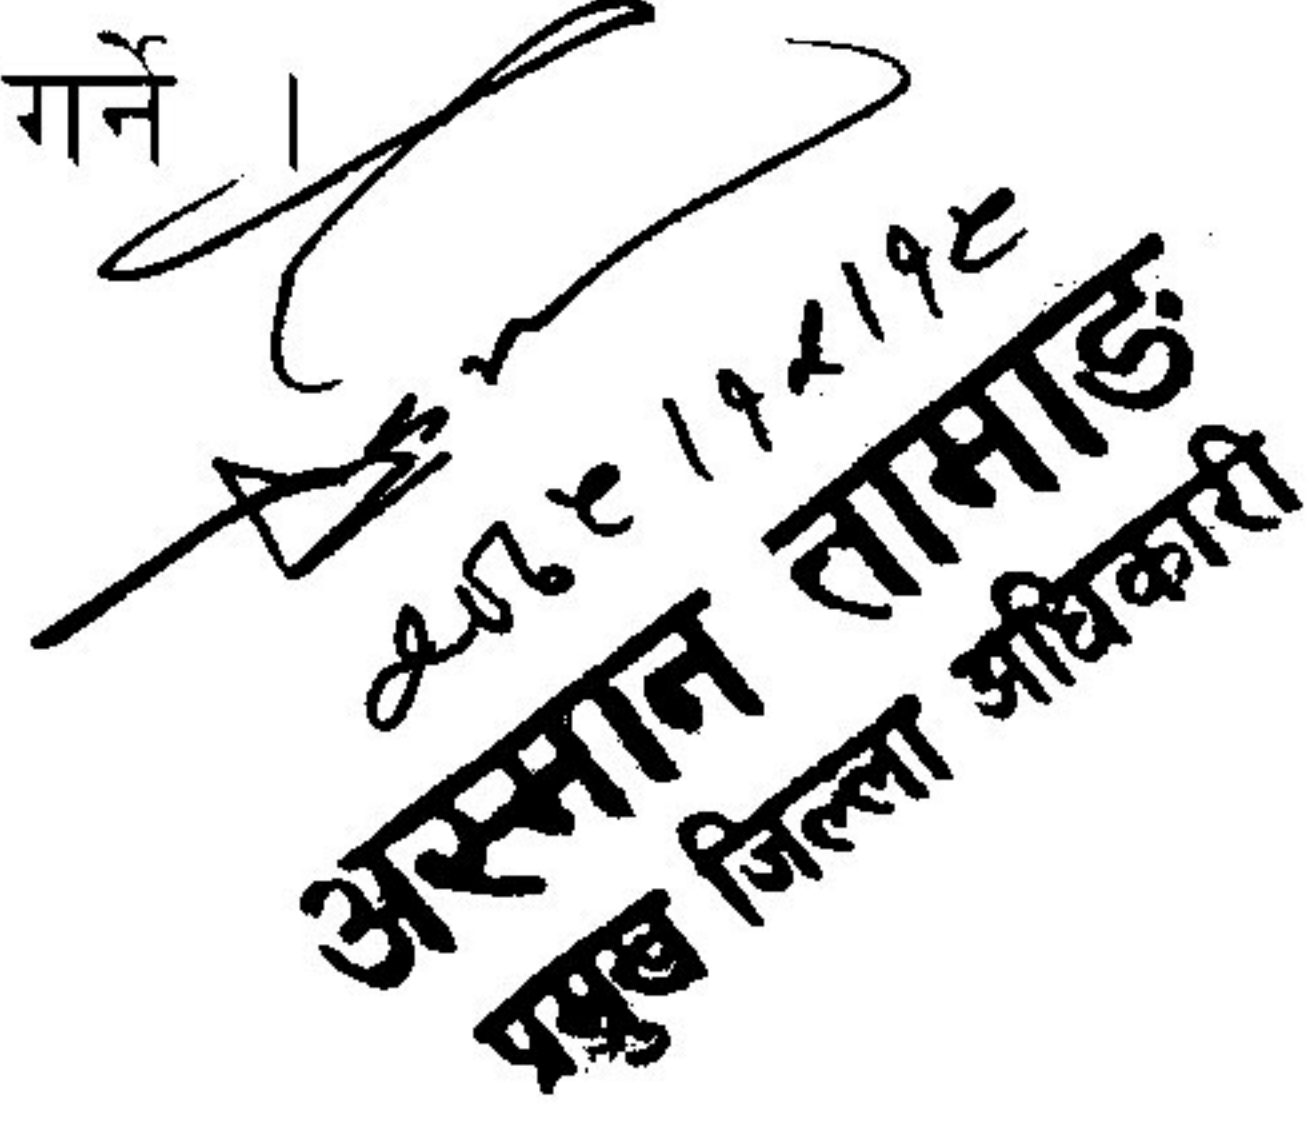 गर्ने ।
२०७९।१२।१९
अस्मान तामाङ
प्रमुख जिल्ला अधिकारी